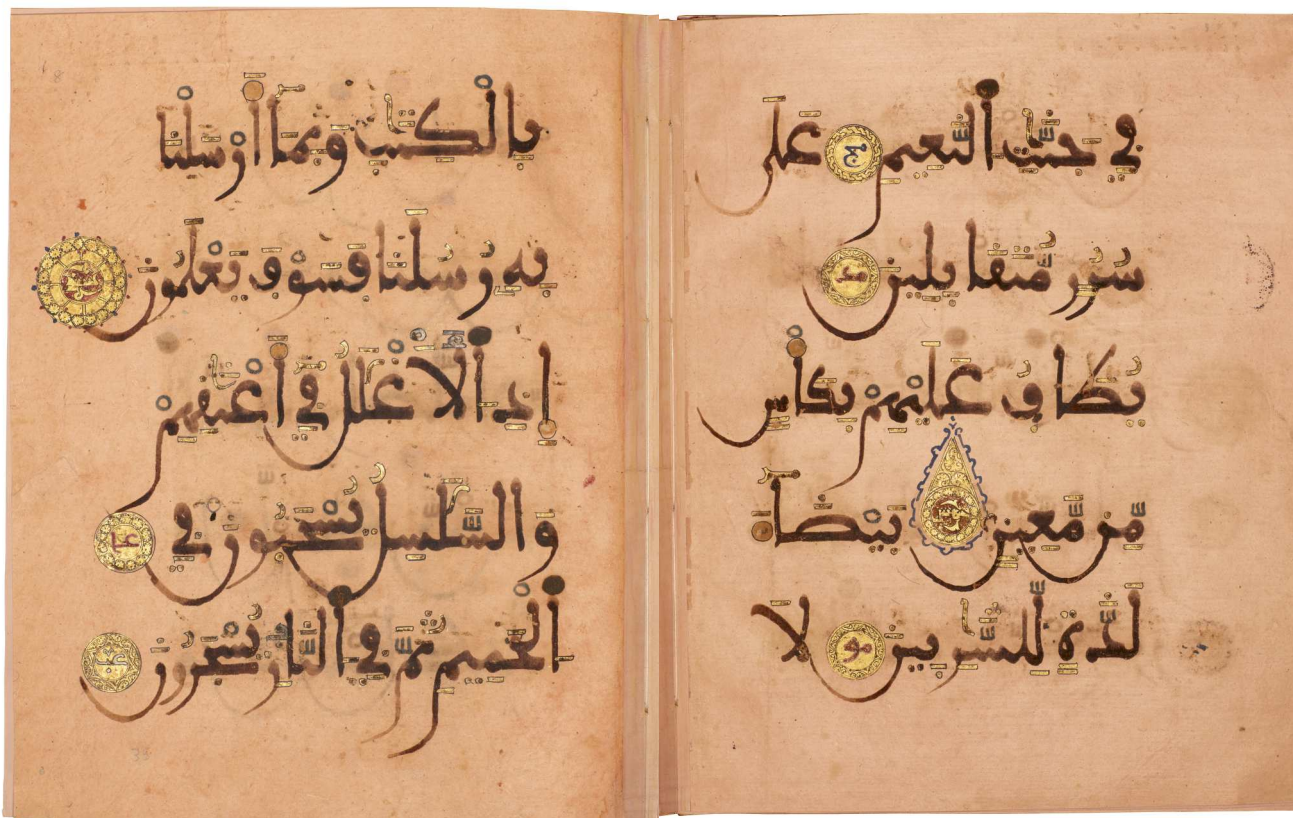 فِي جَنَّٰتِ اَ۬لنَّعِيمِ مج عَلَىٰ
سُرُرٖ مُّتَقَٰبِلِينَ مد
يُطَافُ عَلَيْهِم بِكَأْسٖ
مِّن مَّعِينِۢ بَيْضَآءَ
لَذَّةٖ لِّلشَّٰرِبِينَ مو لَا
بِالْكِتَٰبِ وَبِمَآ أَرْسَلْنَا
بِهِۦ رُسُلَنَا فَسَوْفَ يَعْلَمُونَ
إِذِ اِ۬لْأَغْلَٰلُ فِيٓ أَعْنَٰقِهِمْ
وَالسَّلَٰسِلُ يُسْحَبُونَ عا فِي
اِ۬لْحَمِيمِ ثُمَّ فِي اِ۬لنّ۪ارِ يُسْجَرُونَ عب